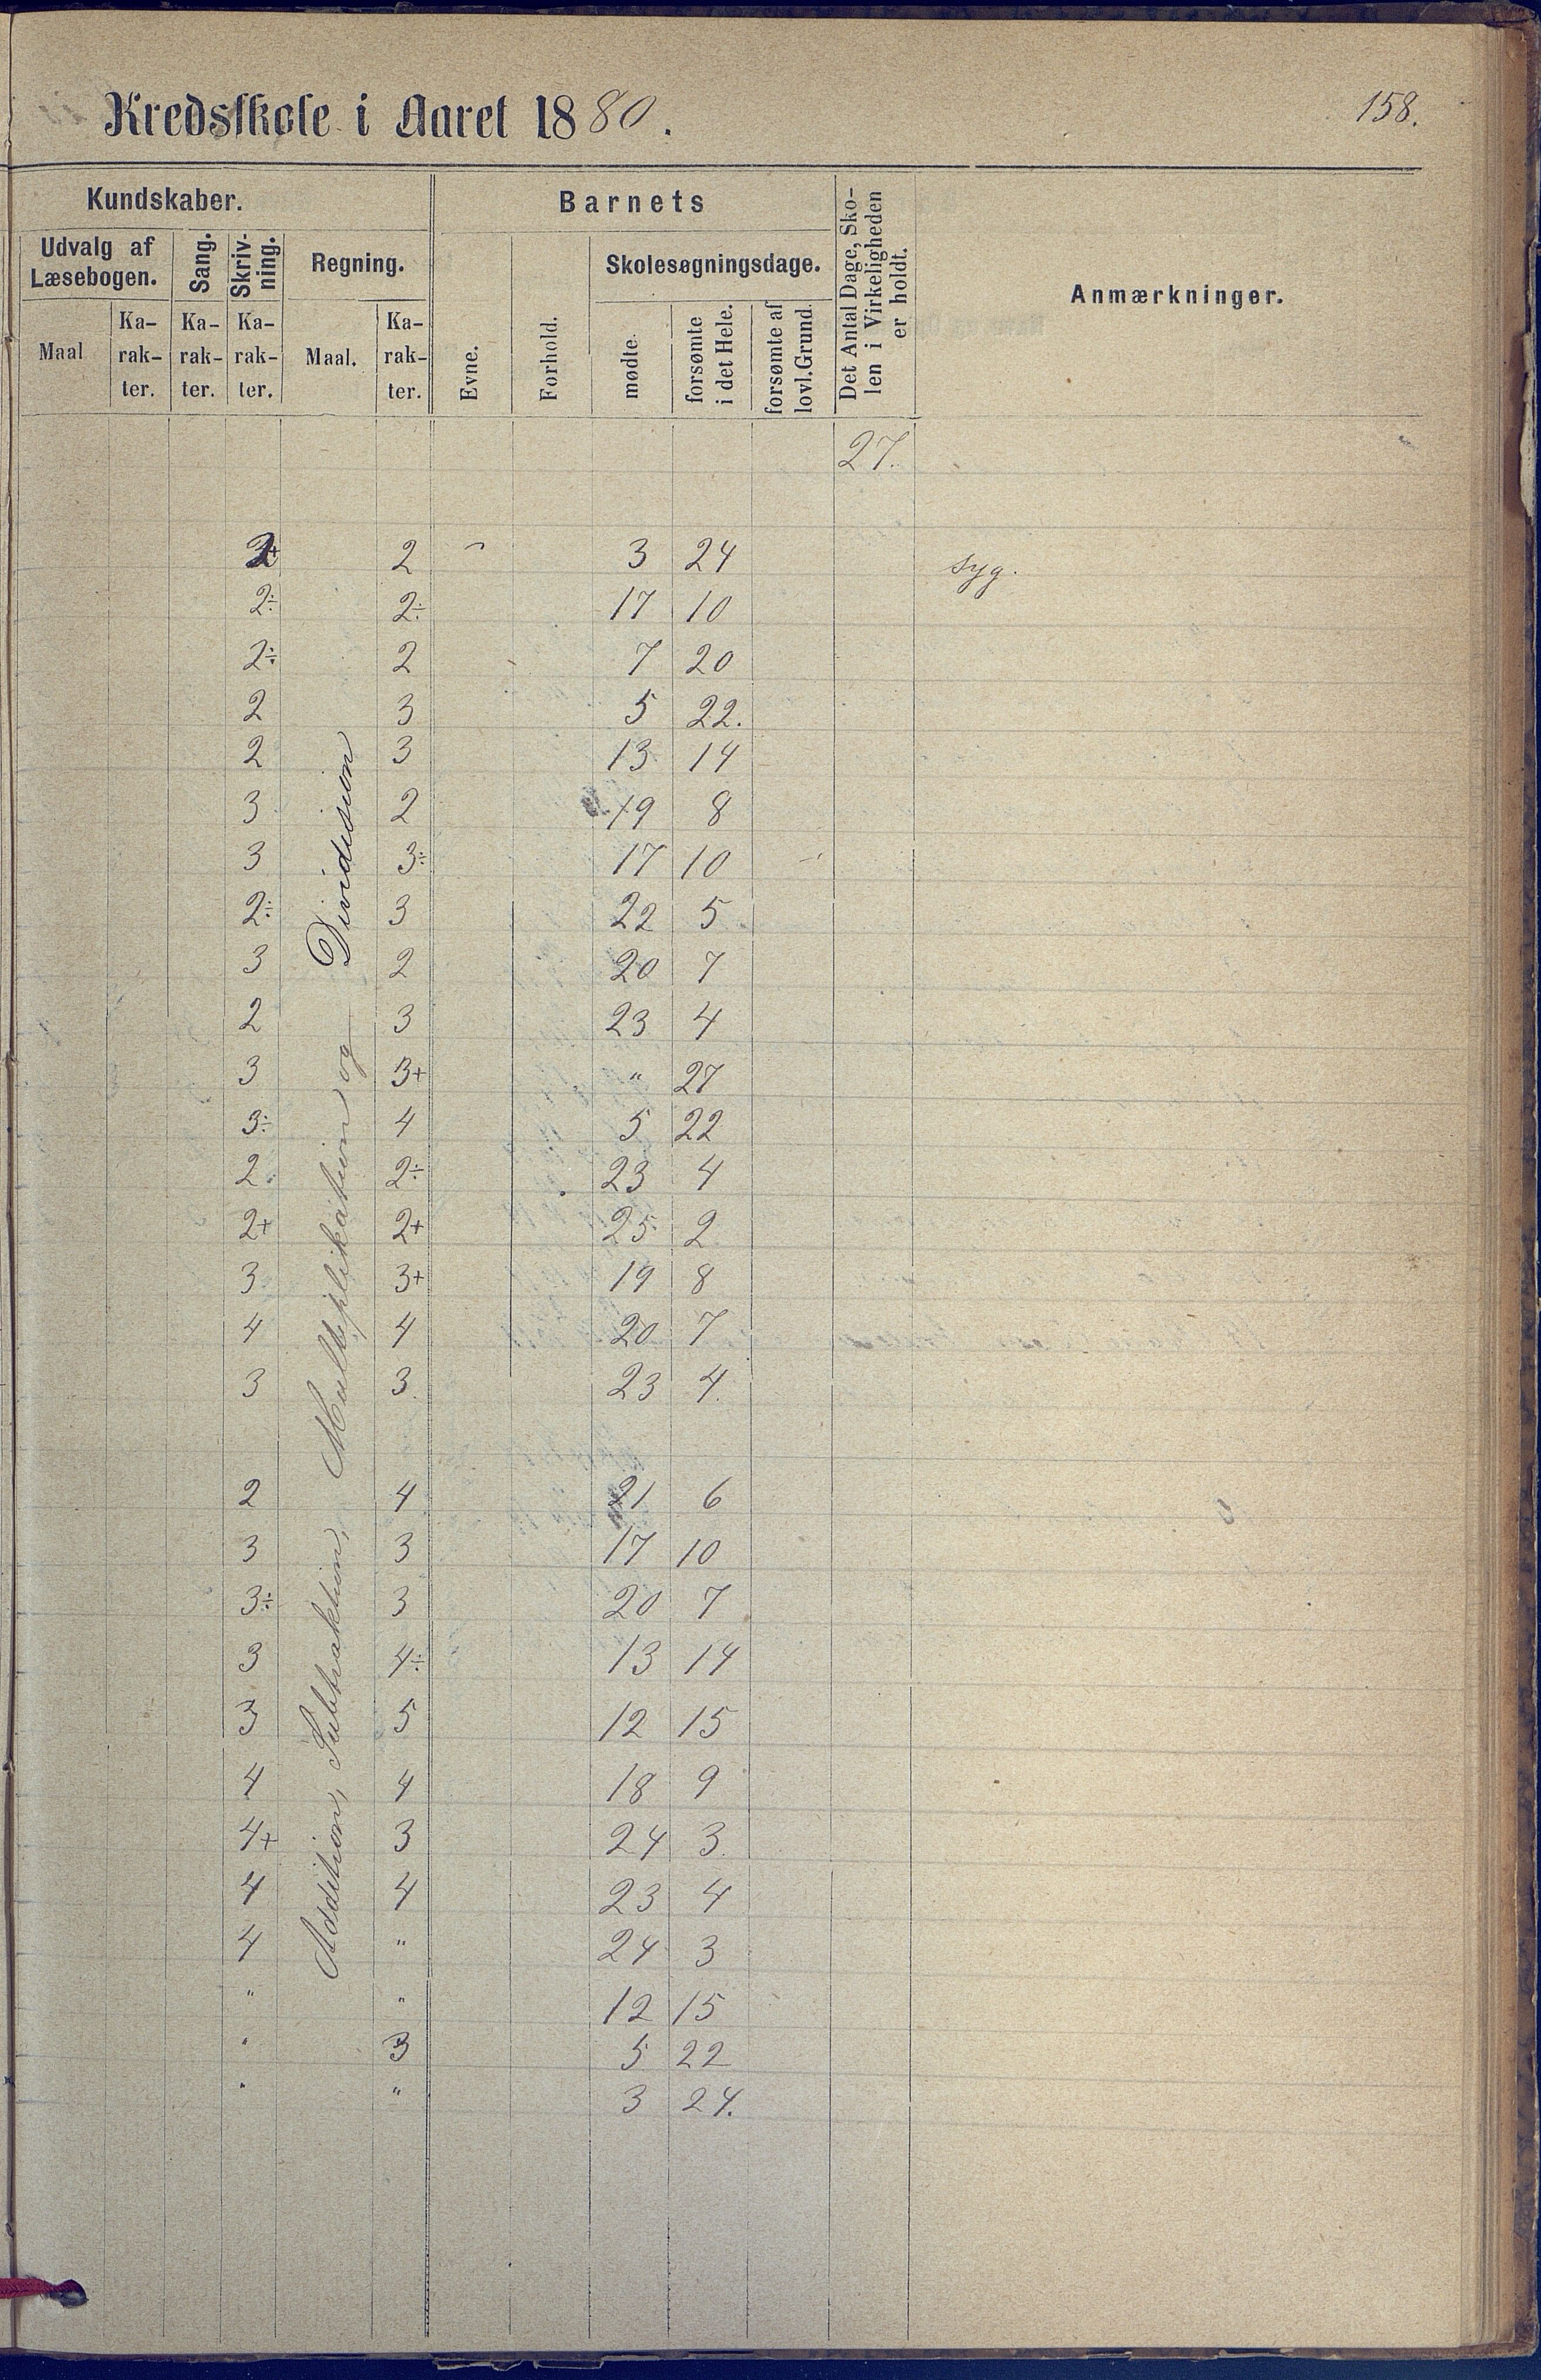 Kredsskole i Aaret 1880.
158.
Kundskaber.
Barnets
Det Antal Dage, Sko-
len i Virkeligheden
er holdt.
Anmærkninger.
Udvalg af
Læsebogen.
Sang.
Skriv-
ning.
Regning.
Skolesøgningsdage.
Maal
Ka-
rak-
ter.
Ka-
rak-
ter.
Ka-
rak-
ter.
Maal.
Ka-
rak-
ter.
Evne.
Forhold.
mødte.
forsømte
i det Hele.
forsømte af
lovl. Grund.
27.
2 3 24 syg.
2÷ 2÷ 17 10
2÷ 2 7 20
2 3 5 22.
2 3 13 14
3 2 19 8
3 3÷ 17 10
2÷ 3 22 5
3 2 20 7
2 3 23 4
3 3+ " 27
3÷ 4 5 22
2 2÷ 23 4
2+ 2+ 25 2
3 3+ 19 8
4 4 20 7
3 3. 23 4.
2 4 21 6
3 3 17 10
3÷ 3 20 7
3 4÷ 13 14
3 5 12 15
4 4 18 9
4+ 3 24 3
4 4 23 4
4 " 24 3
" " 12 15
" 3 5 22
" " 3 24.
Addition, Subtraktion, Multiplikation og Dividision